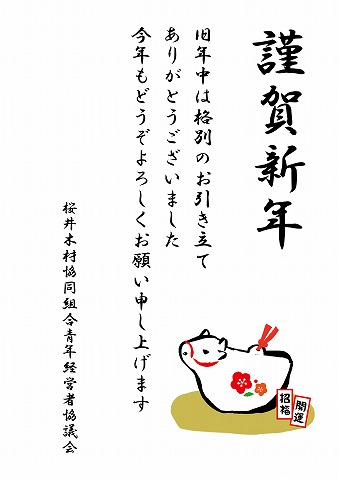 謹賀新年
旧年中は格別のお引き立て
ありがとうございました
今年もどうぞよろしくお願い申し上げます
桜井木材協同組合青年経営者協議会
開運
招福